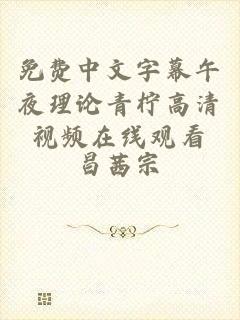 免费中文字幕午
夜理论青柠高清
视频在线观看
昌茜宗